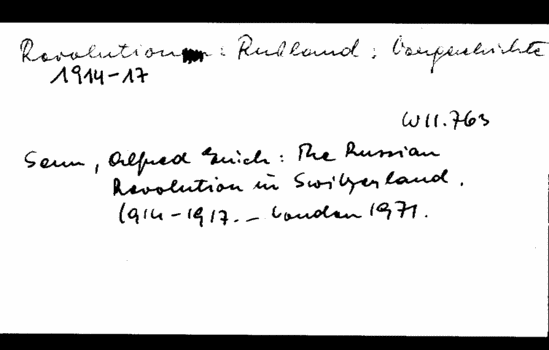 Revolution : Rußland ; Vorgeschichte
1914-17
W 11.763
Senn, Alfred Erich : The Russian
Revolution in Switzerland.
1914-1917. – London 1971.